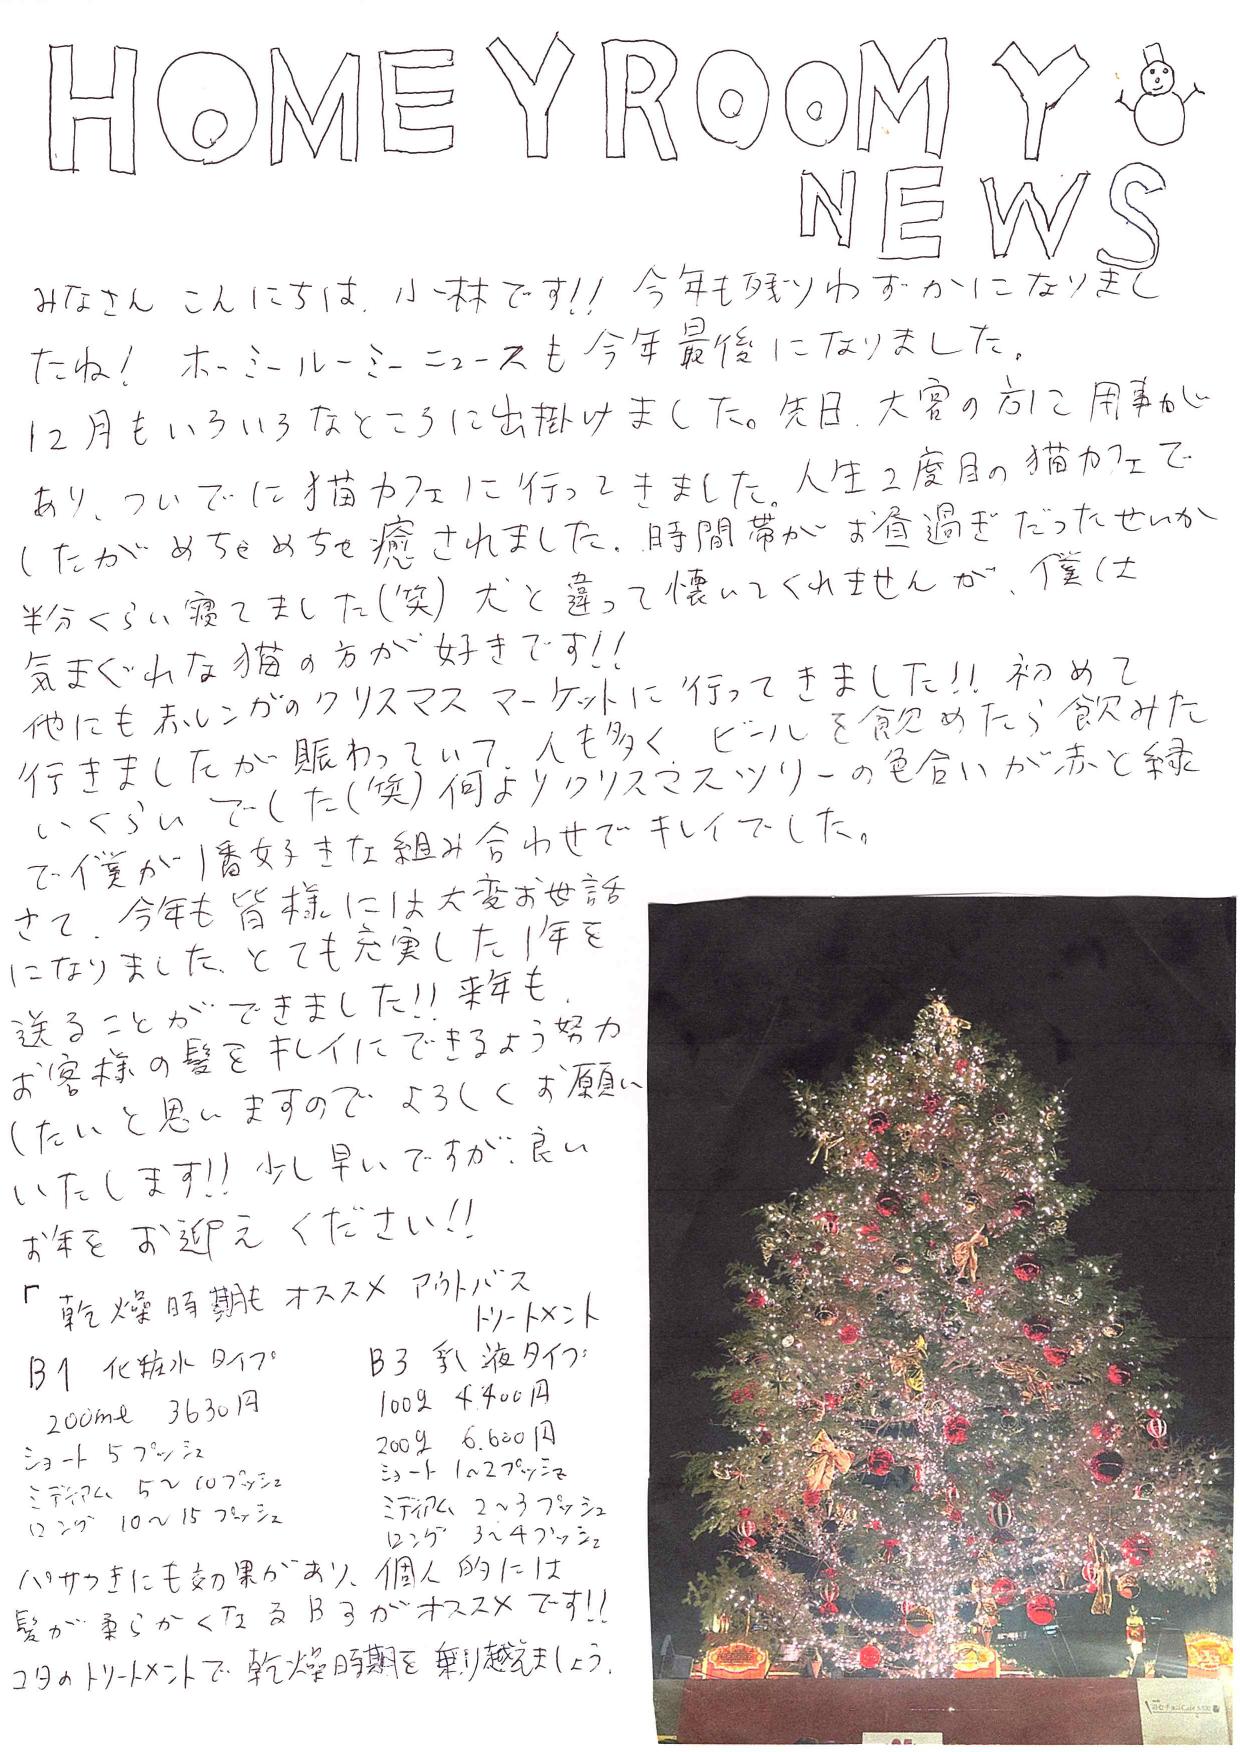 HOMEYROOMY
NEWS
みなさん こんにちは、小林です!! 今年も残りわずかになりまし
たね! ホーミールーミーニュースも今年最後になりました。
12月もいろいろなところに出掛けました。先日、大宮の方に用事が
あり、ついでに猫カフェに行ってきました。人生2度目の猫カフェで
したがめちゃめちゃ癒されました。時間帯がお昼過ぎだったせいか
半分くらい寝てました(笑) 犬と違って懐いてくれませんが、僕は
気まぐれな猫の方が好きです!!
他にも赤レンガのクリスマスマーケットに行ってきました!! 初めて
行きましたが賑わっていて、人も多く、ビールを飲めたら飲みた
いくらいでした(笑) 何よりクリスマスツリーの色合いが赤と緑
で僕が1番好きな組み合わせでキレイでした。
さて、今年も皆様には大変お世話
になりました、とても充実した1年を
送ることができました!! 来年も、
お客様の髪をキレイにできるよう努力
したいと思いますのでよろしくお願い
いたします!! 少し早いですが、良い
お年をお迎えください!!
「乾燥時期もオススメ アウトバス
トリートメント
B1 化粧水タイプ
200ml 3630円
ショート 5プッシュ
ミディアム 5〜10プッシュ
ロング 10〜15プッシュ
B3 乳液タイプ
100g 4.400円
200g 6.600円
ショート 1〜2プッシュ
ミディアム 2〜3プッシュ
ロング 3〜4プッシュ
パサつきにも効果があり、個人的には
髪が柔らかくなるB3がオススメです!!
コタのトリートメントで乾燥時期を乗り越えましょう。